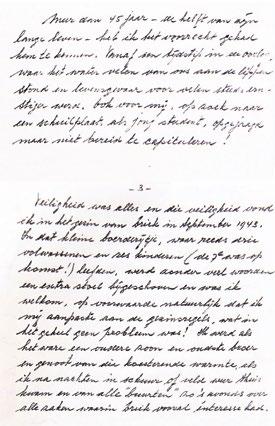 Meer dan 45 jaar - de helft van zijn
lange leven - heb ik het voorrecht gehad
hem te kennen. Vanaf een tijdstip in de oorlog,
waar het water velen van ons aan de lippen
stond en levensgevaar voor velen steeds ern-
stiger werd, ook voor mij, op zoek naar
een schuilplaat, als jong student, opgejaagd
maar niet bereid te capituleren!
- 3 -
Veiligheid was alles en die veiligheid vond
ik in het gezin van Erick in September 1943.
In dat kleine boerderijtje, waar reeds drie
volwassenen en zes kinderen (de 7e was op
komst!) leefden, werd zonder veel woorden
een extra stoel bijgeschoven en was ik
welkom, op voorwaarde natuurlijk dat ik
mij aanpaste aan de gezinsregels, wat in
het geheel geen probleem was! Ik werd als
het ware een oudere zoon en oudste broer
en genoot van die koesterende warmte, als
ik na nachten in schuur of veld weer thuis
kwam en van alle "beurten" zo's avonds over
alle zaken waarin Erick vooral interesse had.